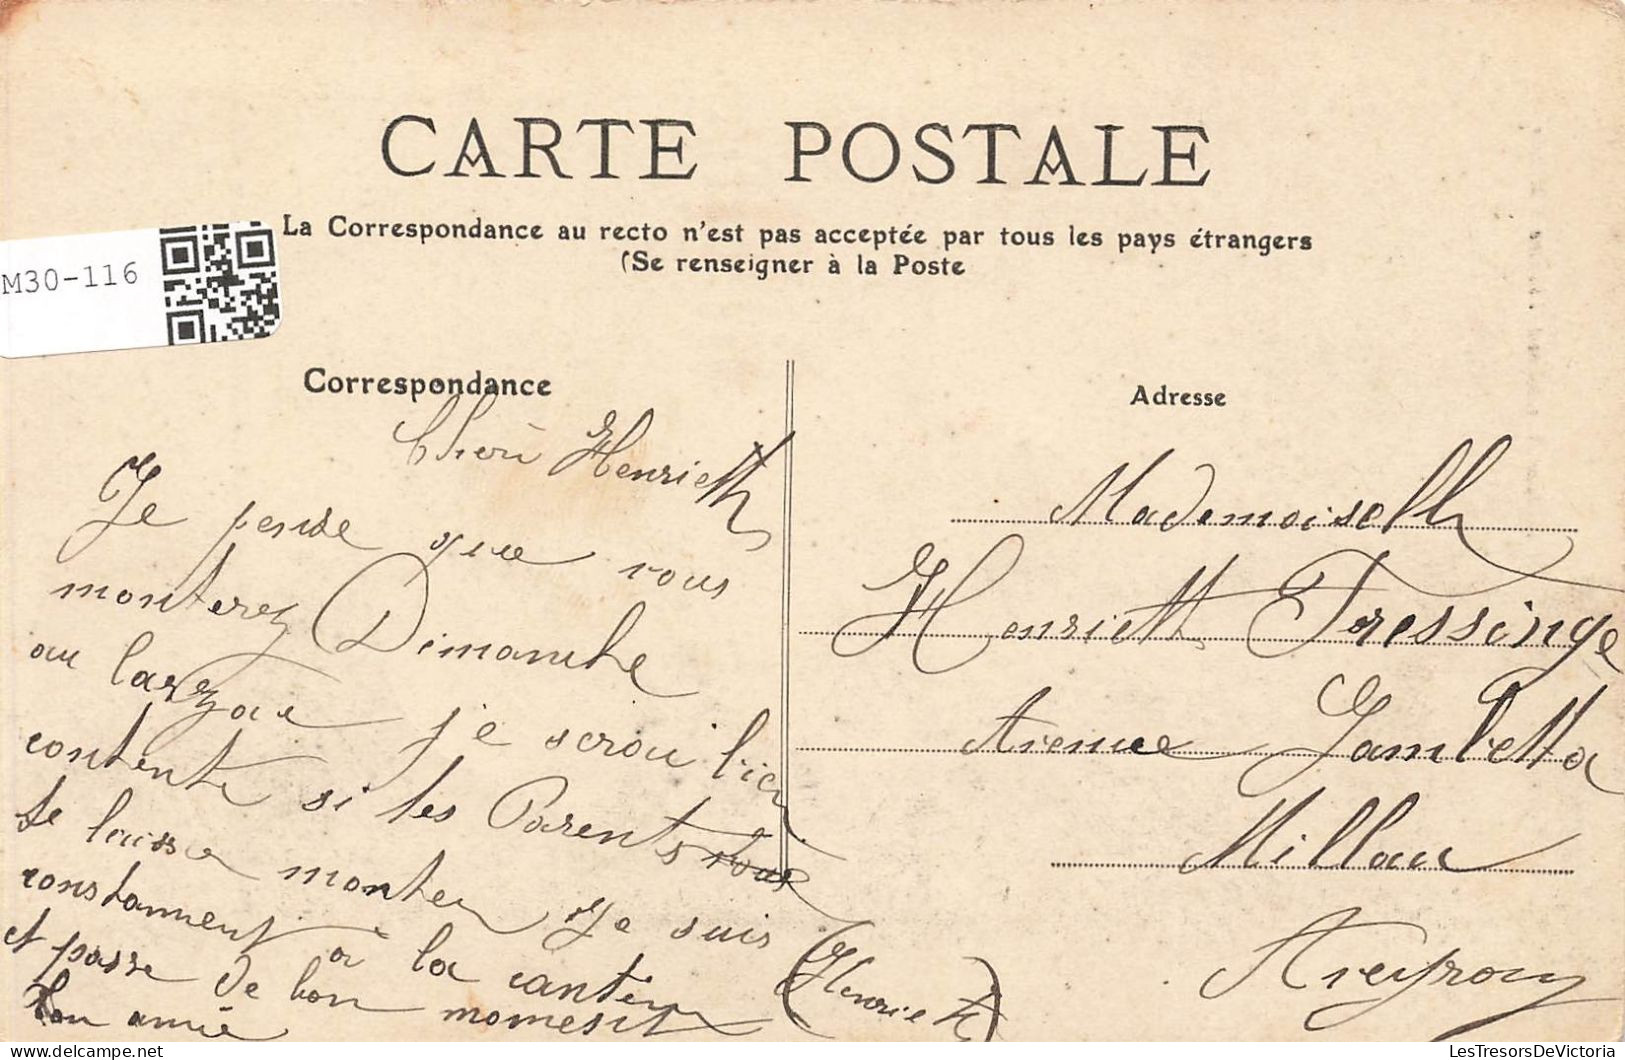 CARTE POSTALE
La Correspondance au recto n'est pas acceptée par tous les pays étrangers
(Se renseigner à la Poste
M30-116
Correspondance
Cheri Henriette
Je pense que vous
monterez Dimanche
au larzac je serai bien
contente si tes Parents
te laisse monter Je suis
constanment à la cantine
et passe de bon moments
ton amie
(Henriette)
Adresse
Mademoiselle
Henriette Fressinge
Avenue Gambetta
Millau
Aveyron
LesTresorsDeVictoria
www.delcampe.net